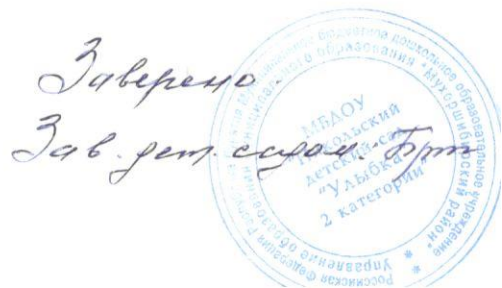 Заверено.
Зав. дет. садом.
МБДОУ
детский сад
"Улыбка"
2 категории
Российская Федерация
бюджетное дошкольное образовательное учреждение
муниципального образования "Мухоршибирский район"
Управление образования